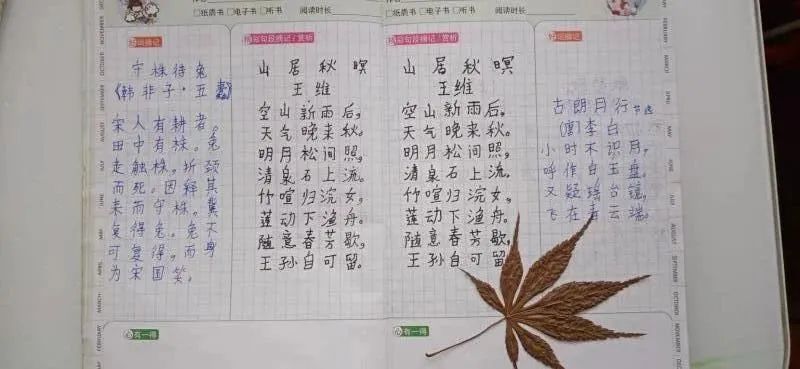 □纸质书 □电子书 □听书 阅读时长
词摘记
守株待兔
《韩非子·五蠹》
宋人有耕者。
田中有株。兔
走触株,折颈
而死。因释其
耒而守株。冀
复得兔。兔不
可复得,而身
为宋国笑。
句段摘记/赏析
山居秋暝
王维
空山新雨后,
天气晚来秋。
明月松间照,
清泉石上流。
竹喧归浣女,
莲动下渔舟。
随意春芳歇,
王孙自可留。
有一得
□纸质书 □电子书 □听书 阅读时长
句段摘记/赏析
山居秋暝
王维
空山新雨后,
天气晚来秋。
明月松间照,
清泉石上流。
竹喧归浣女,
莲动下渔舟。
随意春芳歇,
王孙自可留。
有一得
词摘记
古朗月行 节选
(唐)李白
小时不识月,
呼作白玉盘。
又疑瑶台镜,
飞在青云端。
OCTOBER
NOVEMBER
SEPTEMBER
AUGUST
JULY
JUNE
MAY
APRIL
MARCH
FEBRUARY
FEBRUARY
MARCH
APRIL
MAY
JUNE
JULY
AUGUST
SEPTEMBER
OCTOBER
NOVEMBER